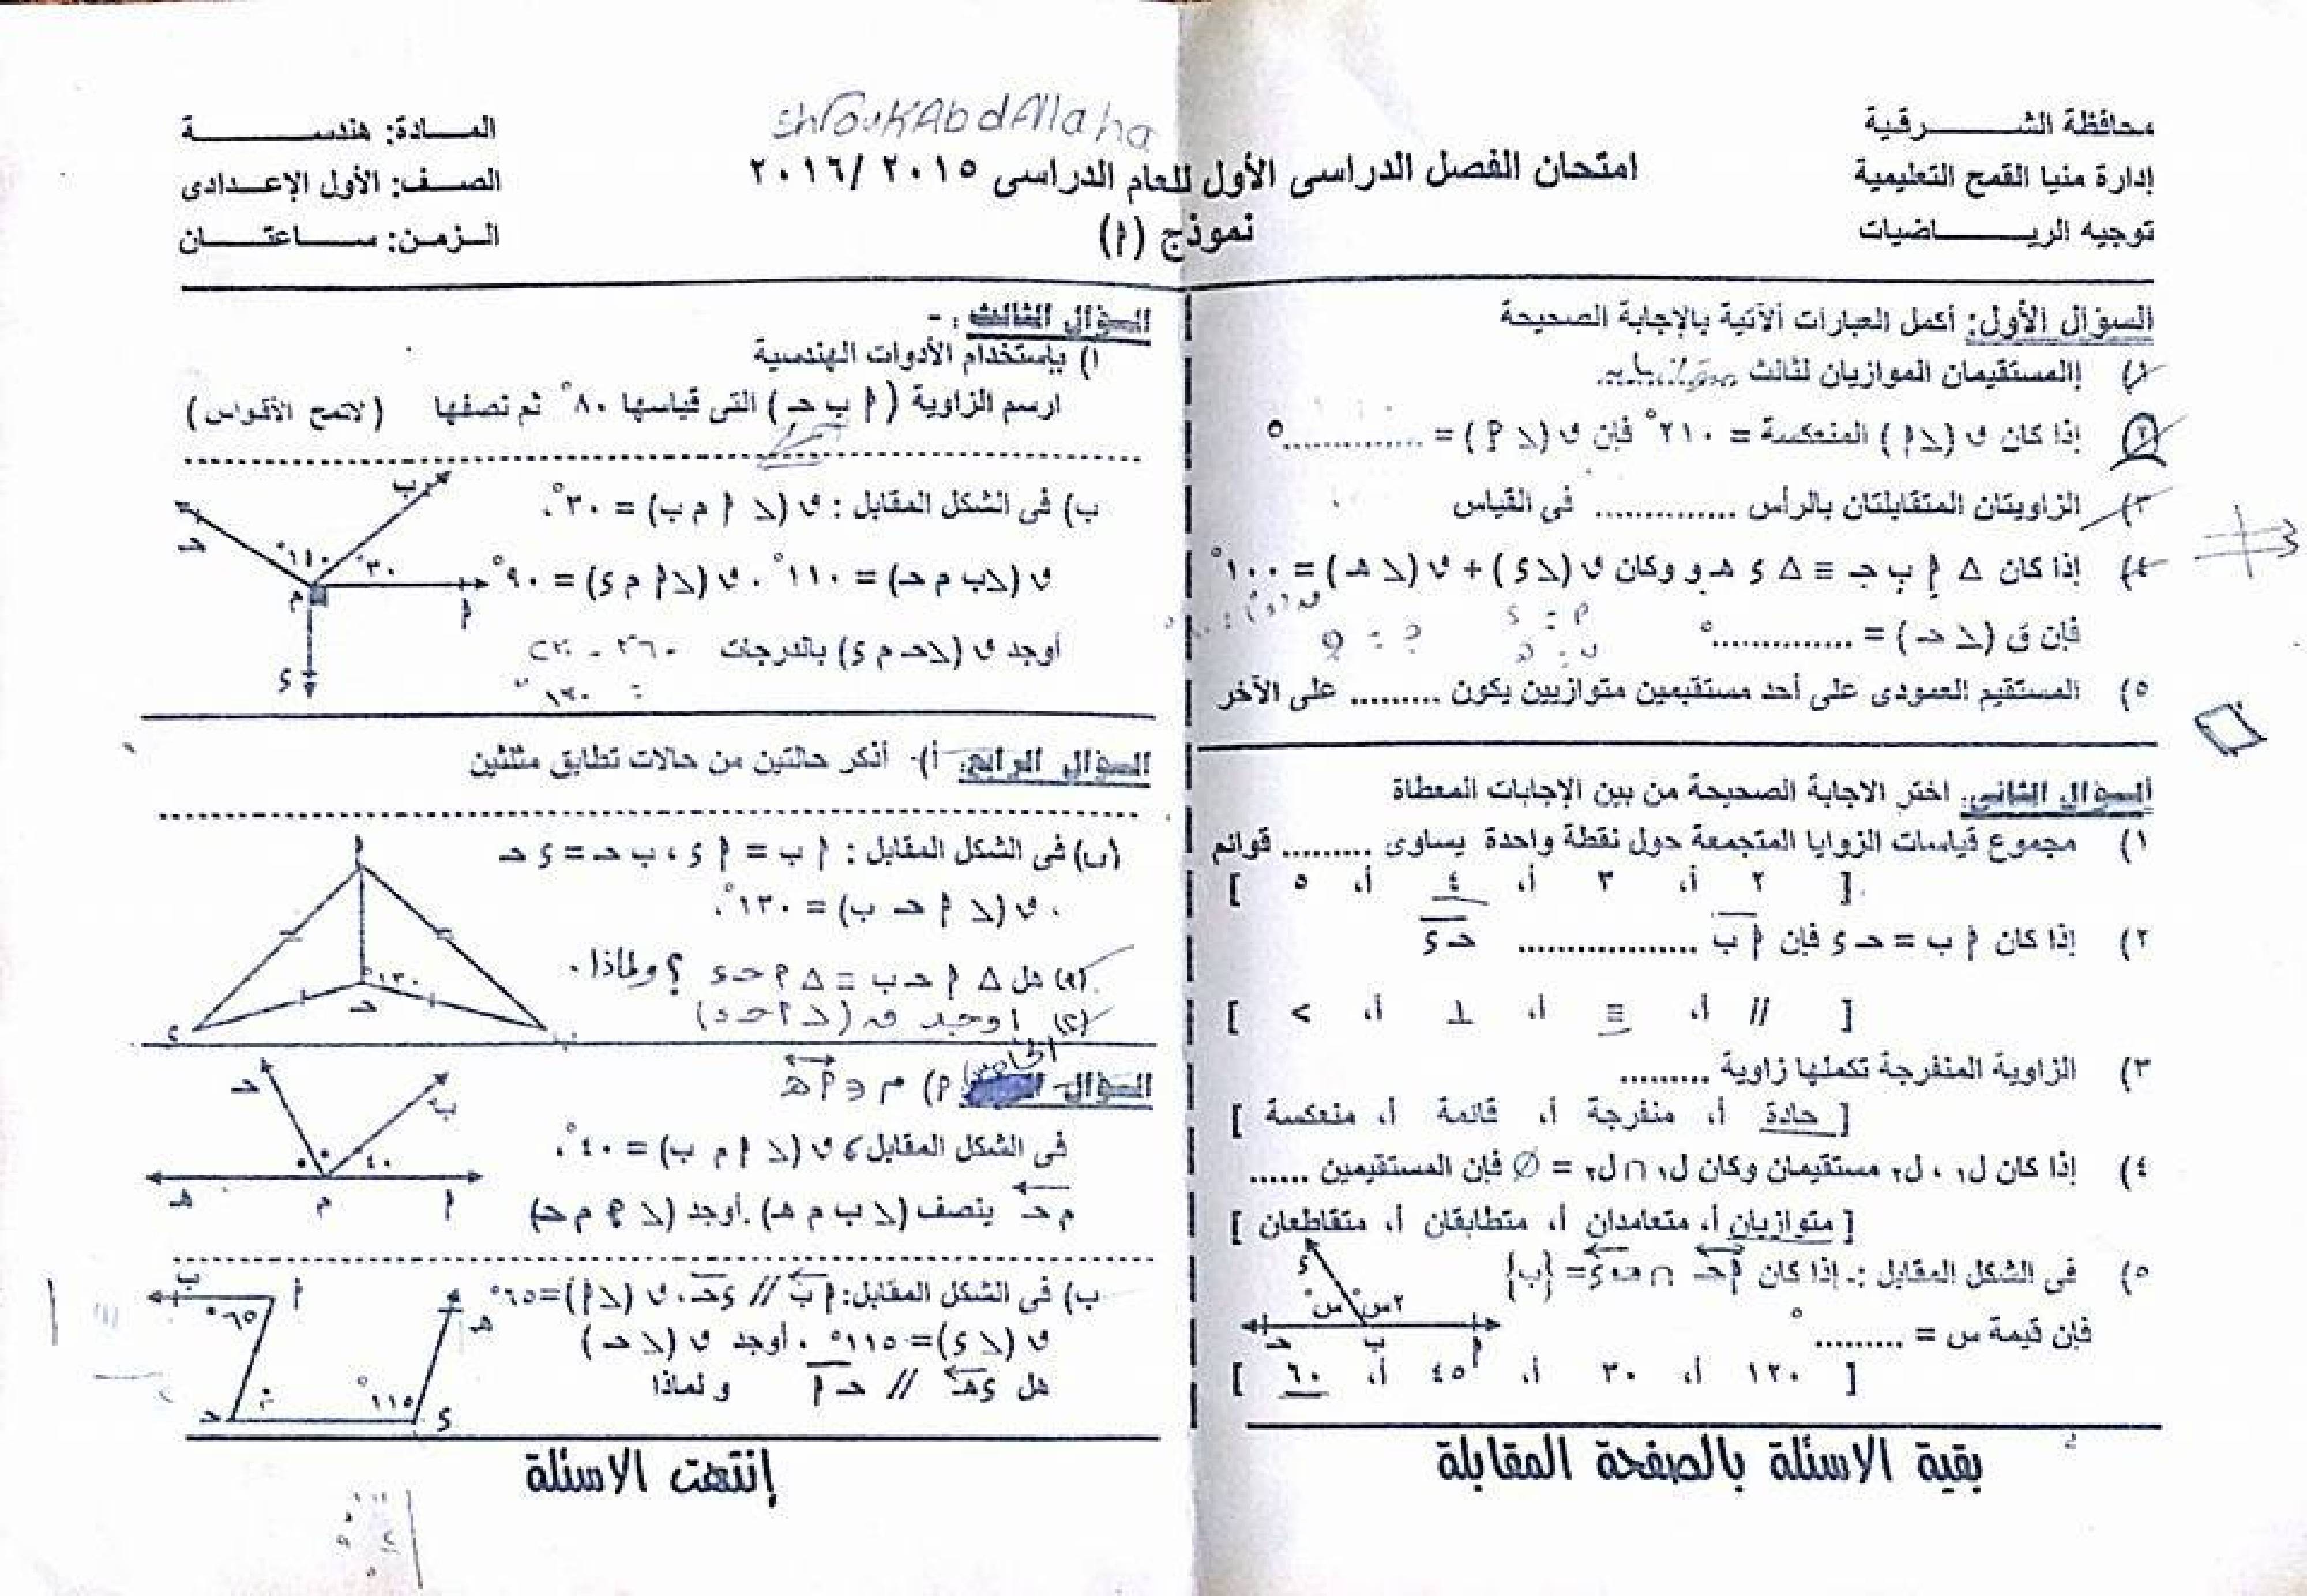 محافظة الشـــــرقية
إدارة منيا القمح التعليمية
توجيه الريـــــاضيات
shroukAbdAllaha
امتحان الفصل الدراسى الأول للعام الدراسى ٢٠١٥ /٢٠١٦
نموذج (أ)
المـــادة: هندســـــة
الصــف: الأول الإعــدادى
الــزمـن: ســـاعتـــان
السؤال الأول: أكمل العبارات ألآتية بالإجابة الصحيحة
١) االمستقيمان الموازيان لثالث متوازيان
٢) إذا كان ق (ک أ) المنعكسة = ٢١٠° فإن ق (ک أ) = ..............°
٣) الزاويتان المتقابلتان بالرأس .............. فى القياس
٤) إذا كان Δ أ ب جـ ≡ Δ ء هـ و وكان ق (ک ء) + ق (ک هـ) = ١٠٠°
فإن ق (ک حـ) = ..............°
٥) المستقيم العمودى على أحد مستقيمين متوازيين يكون ......... على الآخر
السؤال الثانى: اختر الاجابة الصحيحة من بين الإجابات المعطاة
١) مجموع قياسات الزوايا المتجمعة حول نقطة واحدة يساوى ......... قوائم
[ ٢ أ، ٣ أ، ٤ أ، ٥ ]
٢) إذا كان أ ب = حـ ء فإن أ ب .................. حـ ء
[ // أ، ≡ أ، ⊥ أ، > ]
٣) الزاوية المنفرجة تكملها زاوية .........
[ حادة أ، منفرجة أ، قائمة أ، منعكسة ]
٤) إذا كان ل١ ، ل٢ مستقيمان وكان ل١ ∩ ل٢ = Ø فإن المستقيمين ......
[ متوازيان أ، متعامدان أ، متطابقان أ، متقاطعان ]
٥) فى الشكل المقابل :ـ إذا كان أحـ ∩ بء = {ب}
فإن قيمة س = .........°
[ ١٢٠ أ، ٣٠ أ، ٤٥ أ، ٦٠ ]
ء س° ٢س° حـ ب أ
بقية الاسئلة بالصفحة المقابلة
السؤال الثالث : -
١) بإستخدام الأدوات الهندسية
ارسم الزاوية ( أ ب حـ ) التى قياسها ٨٠° ثم نصفها (لاتمح الأقواس)
ب) فى الشكل المقابل : ق (ک أ م ب) = ٣٠°،
ق (ک ب م حـ) = ١١٠° ، ق (ک أ م ء) = ٩٠°
أوجد ق (ک حـ م ء) بالدرجات ٣٦٠ - ٢٣٠
= ١٣٠°
ب حـ ١١٠° ٣٠° م أ ء
السؤال الرابع: أ)- أذكر حالتين من حالات تطابق مثلثين
(ب) فى الشكل المقابل : أ ب = أ ء ، ب حـ = ء حـ
، ق (ک أ حـ ب) = ١٣٠°،
(١) هل Δ أ حـ ب ≡ Δ أ حـ ء ؟ ولماذا.
(٢) اوجد ق (ک أ حـ ء)
أ ١٣٠° حـ ء
السؤال الخامس أ) م ∈ أ هـ
فى الشكل المقابل ، ق (ک أ م ب) = ٤٠°،
م حـ ينصف (ک ب م هـ) .أوجد (ک أ م حـ)
حـ ب ٤٠ هـ م أ
ب) فى الشكل المقابل: أ ب // ء حـ، ق (ک أ)=٦٥°
ق (ک ء)=١١٥° ، أوجد ق (ک حـ )
هل ء هـ // حـ أ و لماذا
ب أ ٦٥° هـ ١١٥° حـ ء
إنتهت الاسئلة